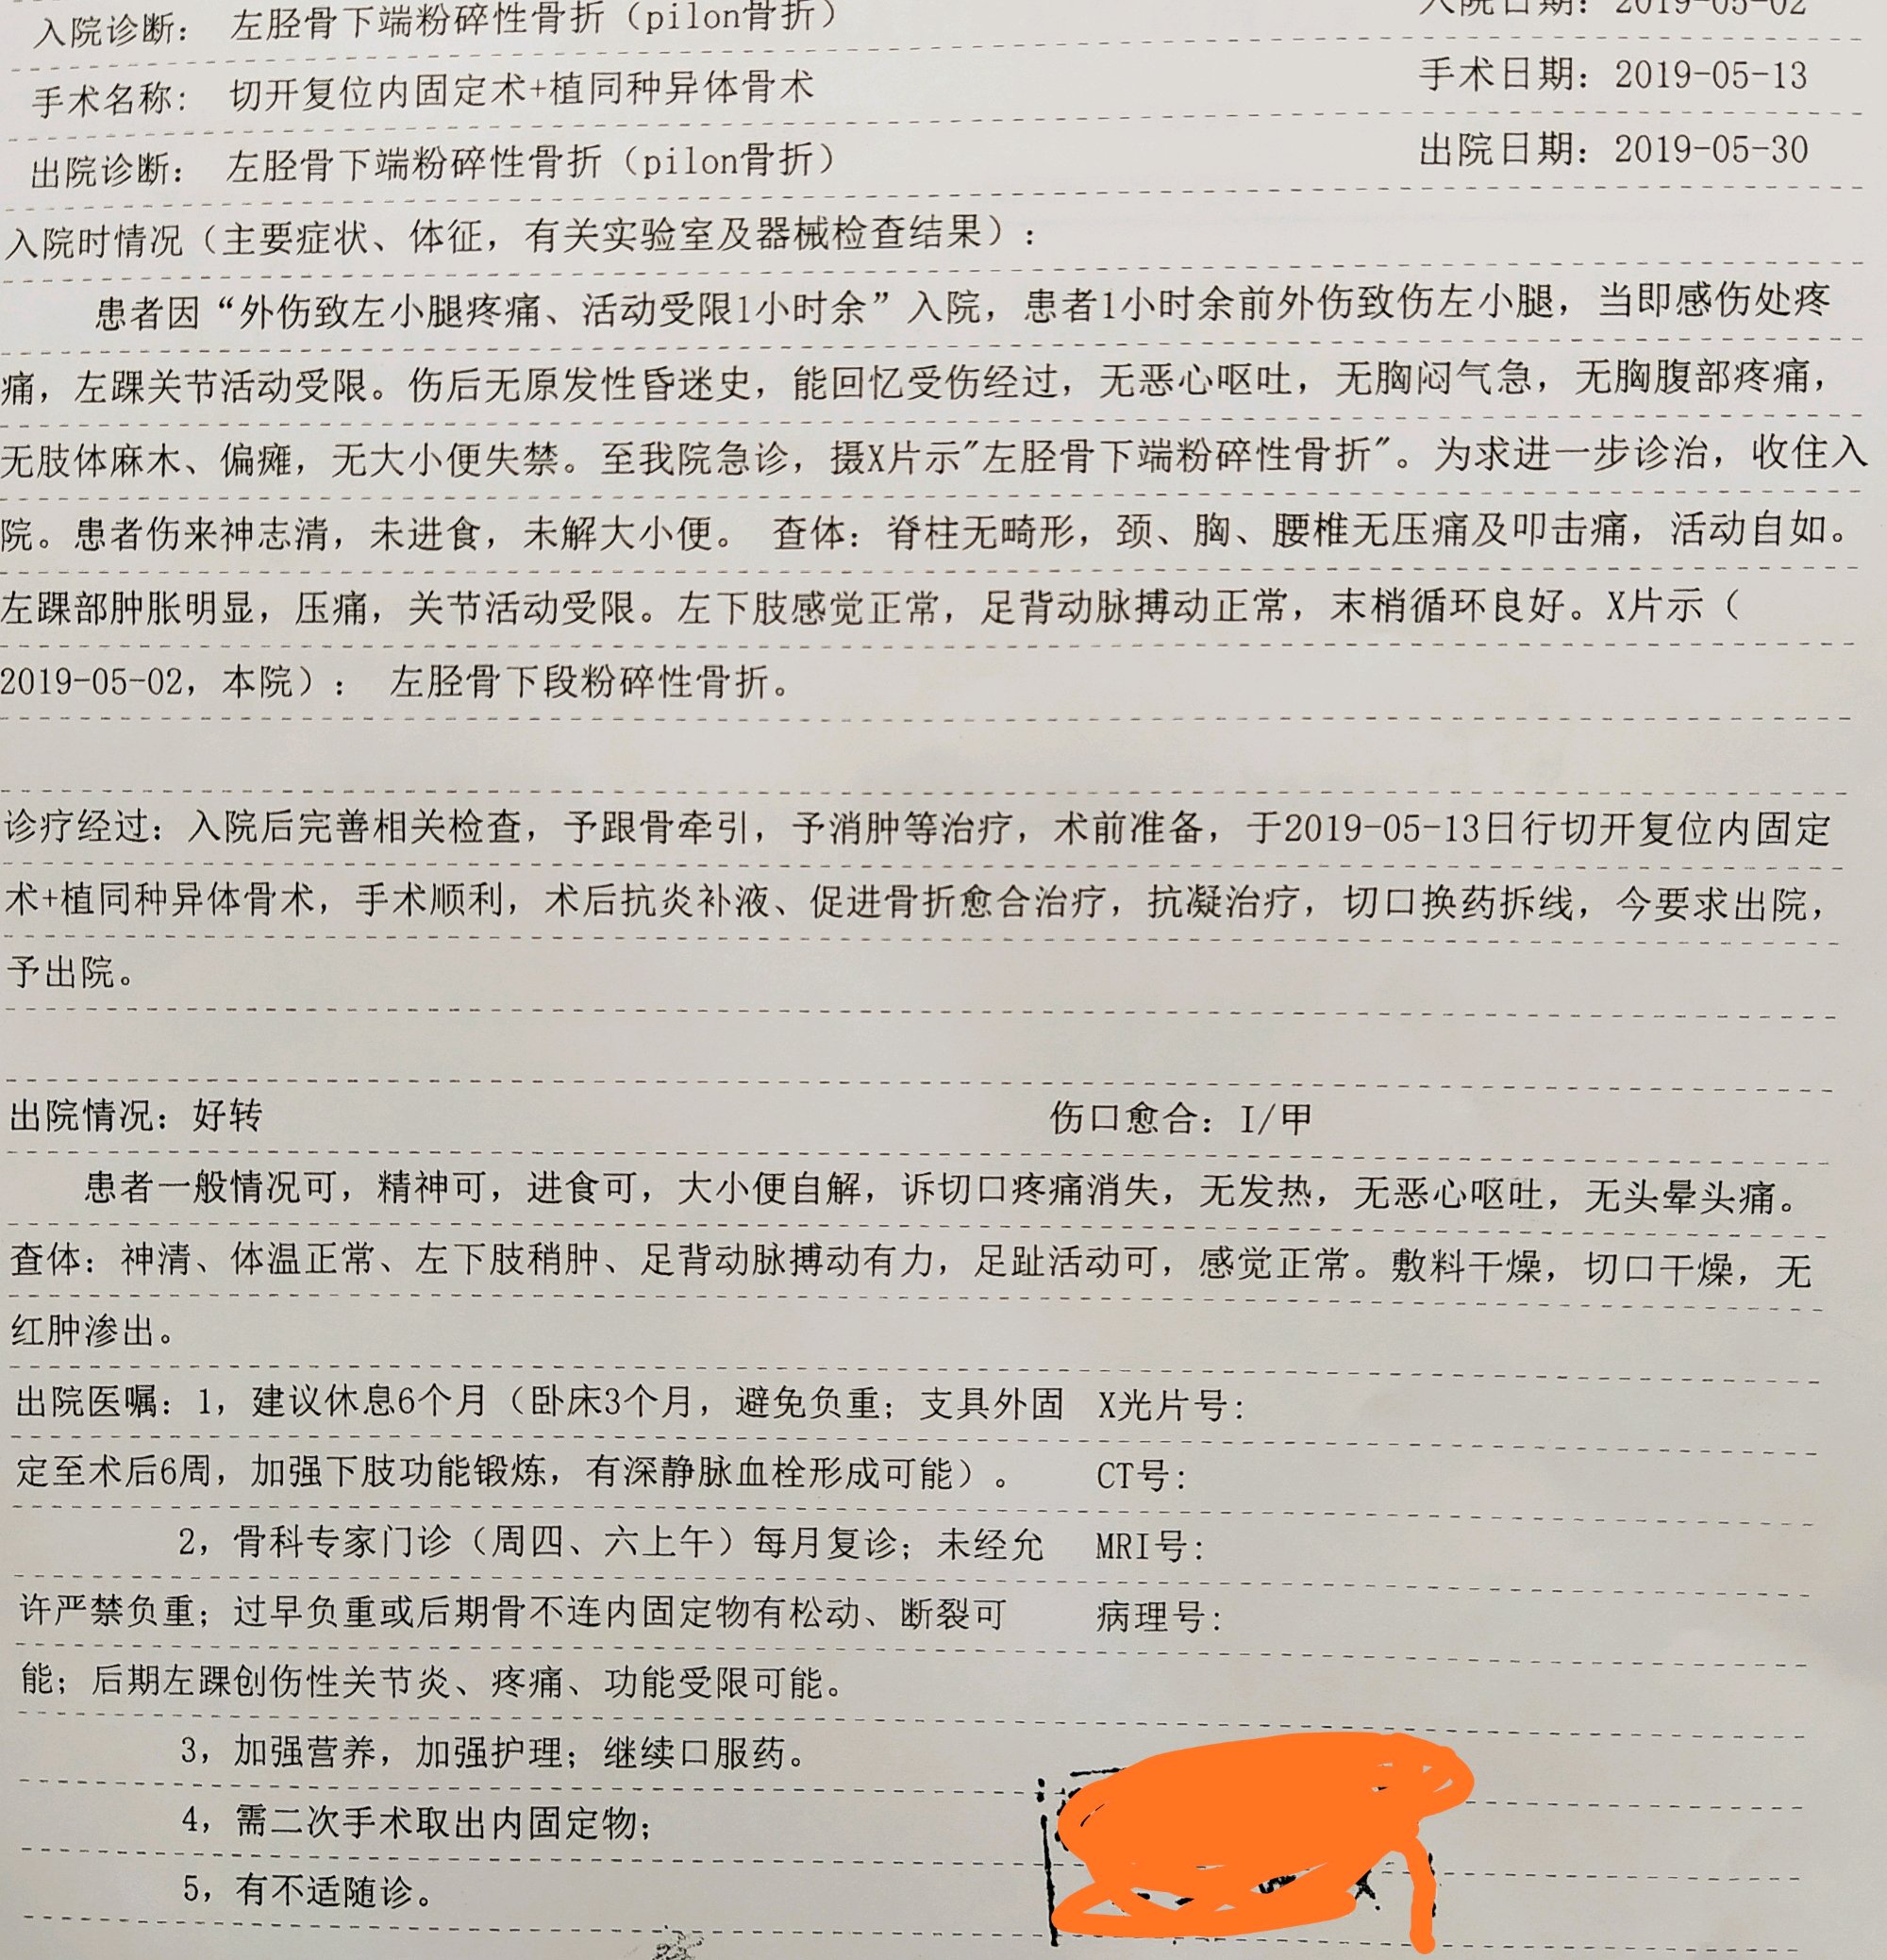 入院诊断： 左胫骨下端粉碎性骨折（pilon骨折） 入院日期：2019-05-02
手术名称： 切开复位内固定术+植同种异体骨术 手术日期：2019-05-13
出院诊断： 左胫骨下端粉碎性骨折（pilon骨折） 出院日期：2019-05-30
入院时情况（主要症状、体征，有关实验室及器械检查结果）：
患者因“外伤致左小腿疼痛、活动受限1小时余”入院，患者1小时余前外伤致伤左小腿，当即感伤处疼
痛，左踝关节活动受限。伤后无原发性昏迷史，能回忆受伤经过，无恶心呕吐，无胸闷气急，无胸腹部疼痛，
无肢体麻木、偏瘫，无大小便失禁。至我院急诊，摄X片示"左胫骨下端粉碎性骨折"。为求进一步诊治，收住入
院。患者伤来神志清，未进食，未解大小便。 查体：脊柱无畸形，颈、胸、腰椎无压痛及叩击痛，活动自如。
左踝部肿胀明显，压痛，关节活动受限。左下肢感觉正常，足背动脉搏动正常，末梢循环良好。X片示（
2019-05-02，本院）： 左胫骨下段粉碎性骨折。
诊疗经过：入院后完善相关检查，予跟骨牵引，予消肿等治疗，术前准备，于2019-05-13日行切开复位内固定
术+植同种异体骨术，手术顺利，术后抗炎补液、促进骨折愈合治疗，抗凝治疗，切口换药拆线，今要求出院，
予出院。
出院情况：好转 伤口愈合：I/甲
患者一般情况可，精神可，进食可，大小便自解，诉切口疼痛消失，无发热，无恶心呕吐，无头晕头痛。
查体：神清、体温正常、左下肢稍肿、足背动脉搏动有力，足趾活动可，感觉正常。敷料干燥，切口干燥，无
红肿渗出。
出院医嘱：1，建议休息6个月（卧床3个月，避免负重；支具外固 X光片号：
定至术后6周，加强下肢功能锻炼，有深静脉血栓形成可能）。 CT号：
2，骨科专家门诊（周四、六上午）每月复诊；未经允 MRI号：
许严禁负重；过早负重或后期骨不连内固定物有松动、断裂可 病理号：
能；后期左踝创伤性关节炎、疼痛、功能受限可能。
3，加强营养，加强护理；继续口服药。
4，需二次手术取出内固定物；
5，有不适随诊。